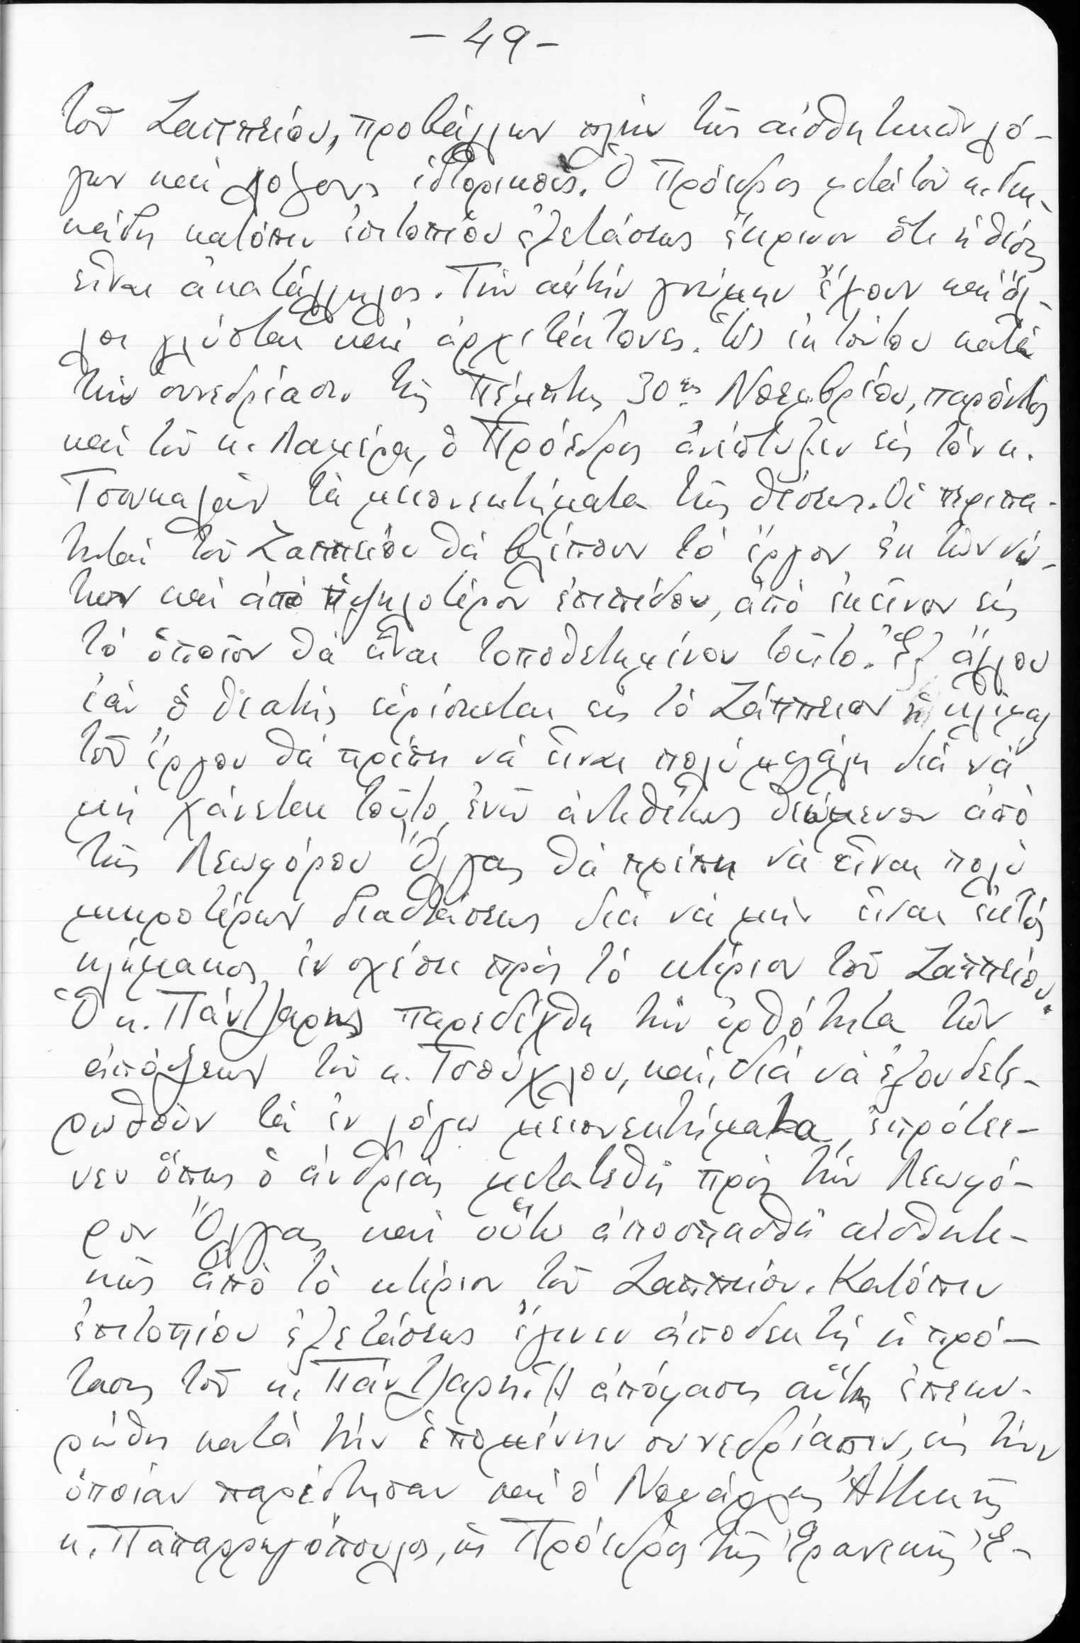 - 49 -
τοῦ Ζαππείου, προβάλλων πλὴν τῶν αἰσθητικῶν λό-
γων καὶ λόγους ἱστορικούς. Ὁ Πρόεδρος μετὰ τοῦ κ.
κατόπιν ἐπιτοπίου ἐξετάσεως ἔκρινον ὅτι ἡ θέσις
εἶναι ἀκατάλληλος. Τὴν αὐτὴν γνώμην ἔχουν καὶ ἄλ-
λοι γλύπται καὶ ἀρχιτέκτονες. Ὡς ἐκ τούτου κατὰ
τὴν συνεδρίασιν τῆς Πέμπτης 30ης Νοεμβρίου, παρόντος
καὶ τοῦ κ. Λαμέρα, ὁ Πρόεδρος ἀνέπτυξεν εἰς τὸν κ.
Τσουκαλᾶν τὰ μειονεκτήματα τῆς θέσεως. Οἱ περιπα-
τηταὶ τοῦ Ζαππείου θὰ βλέπουν τὸ ἔργον ἐκ τῶν νώ-
των καὶ ἀπὸ ὑψηλοτέρου ἐπιπέδου, ἀπὸ ἐκεῖνον εἰς
τὸ ὁποῖον θὰ εἶναι τοποθετημένον τοῦτο. Ἐξ ἄλλου
ἐὰν ὁ θεατὴς εὑρίσκεται εἰς τὸ Ζάππειον ἡ κλῖμαξ
τοῦ ἔργου θὰ πρέπη νὰ εἶναι πολὺ μεγάλη διὰ νὰ
μὴ χάνεται τοῦτο, ἐνῶ ἀντιθέτως θεώμενον ἀπὸ
τῆς Λεωφόρου Ὄλγας θὰ πρέπη νὰ εἶναι πολὺ
μικροτέρων διαστάσεως διὰ νὰ μὴν εἶναι ἐκτὸς
κλίμακος ἐν σχέσει πρὸς τὸ κτίριον τοῦ Ζαππείου.
Ὁ κ. Πάντζαρης παρεδέχθη τὴν ὀρθότητα τῶν
ἀπόψεων τοῦ κ. Τσούχλου, καὶ, διὰ νὰ ἐξουδετε-
ρωθοῦν τὰ ἐν λόγω μειονεκτήματα, ἐπρότει-
νεν ὅπως ὁ ἀνδριὰς μετατεθῆ πρὸς τὴν Λεωφό-
ρον Ὄλγας καὶ οὕτω ἀποσπασθῆ αἰσθητι-
κῶς ἀπὸ τὸ κτίριον τοῦ Ζαππείου. Κατόπιν
ἐπιτοπίου ἐξετάσεως ἔγινεν ἀποδεκτὴ ἡ πρό-
τασις τοῦ κ. Πάντζαρη. Ἡ ἀπόφασις αὕτη ἐπεκυ-
ρώθη κατὰ τὴν ἑπομένην συνεδρίασιν, εἰς τὴν
ὁποίαν παρέστησαν καὶ ὁ Νομάρχης Ἀττικῆς
κ. Παπαρρηγόπουλος, ὡς Πρόεδρος τῆς Ἐρανικῆς Ἐ-